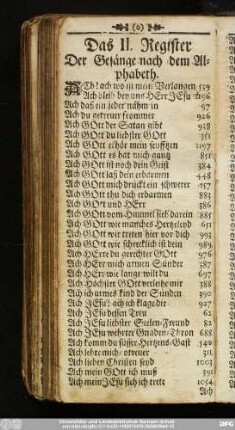 (o)
Das II. Register
Der Gesänge nach dem Al-
phabeth.
ACh! ach wo ist mein Verlangen 539
Ach bleib bey uns HErr JEsu 1196
Ach daß ein jeder nähm in 97
Ach du getreuer frommer 926
Ach GOtt der Satan gibt 918
Ach GOtt du liebster GOtt 351
Ach GOtt erhör mein seufftzen 1197
Ach GOtt es hat mich gantz 851
Ach GOtt ist noch dein Geist 384
Ach GOtt laß dein erbarmen 448
Ach GOtt mich drückt ein schwerer 257
Ach GOtt thu dich erbarmen 883
Ach GOtt und HErr 386
Ach GOtt vom Himmel sieh darein 885
Ach GOtt wie manches Hertzeleyd 651
Ach GOtt wir treten hier vor dich 993
Ach GOtt wie schrecklich ist dein 989
Ach HErre du gerechter GOtt 976
Ach HErr mich armen Sünder 387
Ach HErr wie lange wilt du 697
Ach Höchster GOtt verleihe mir 388
Ach ich armes Kind der Sünden 390
Ach JEsu! ach ich klage dir 927
Ach JEsu dessen Treu 62
Ach JEsu liebster Seelen-Freund 82
Ach JEsu wehrter Gnaden-Thron 688
Ach komm du süsser Hertzens-Gast 540
Ach lehre mich o treuer 311
Ach lieben Christen seyd 1003
Ach mein GOtt ich muß 391
Ach mein JEsu sieh ich trete 1054
Ach